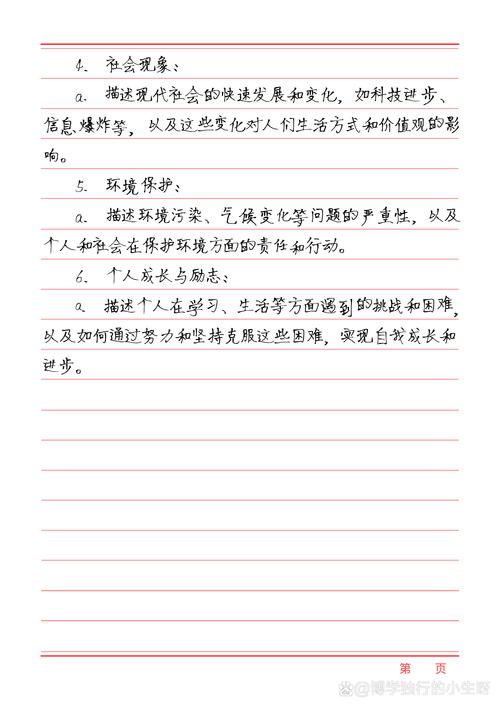 4. 社会现象：
a. 描述现代社会的快速发展和变化，如科技进步、
信息爆炸等，以及这些变化对人们生活方式和价值观的影
响。
5. 环境保护：
a. 描述环境污染、气候变化等问题的严重性，以及
个人和社会在保护环境方面的责任和行动。
6. 个人成长与励志：
a. 描述个人在学习、生活等方面遇到的挑战和困难，
以及如何通过努力和坚持克服这些困难，实现自我成长和
进步。
第 页
@博学独行的小生呀